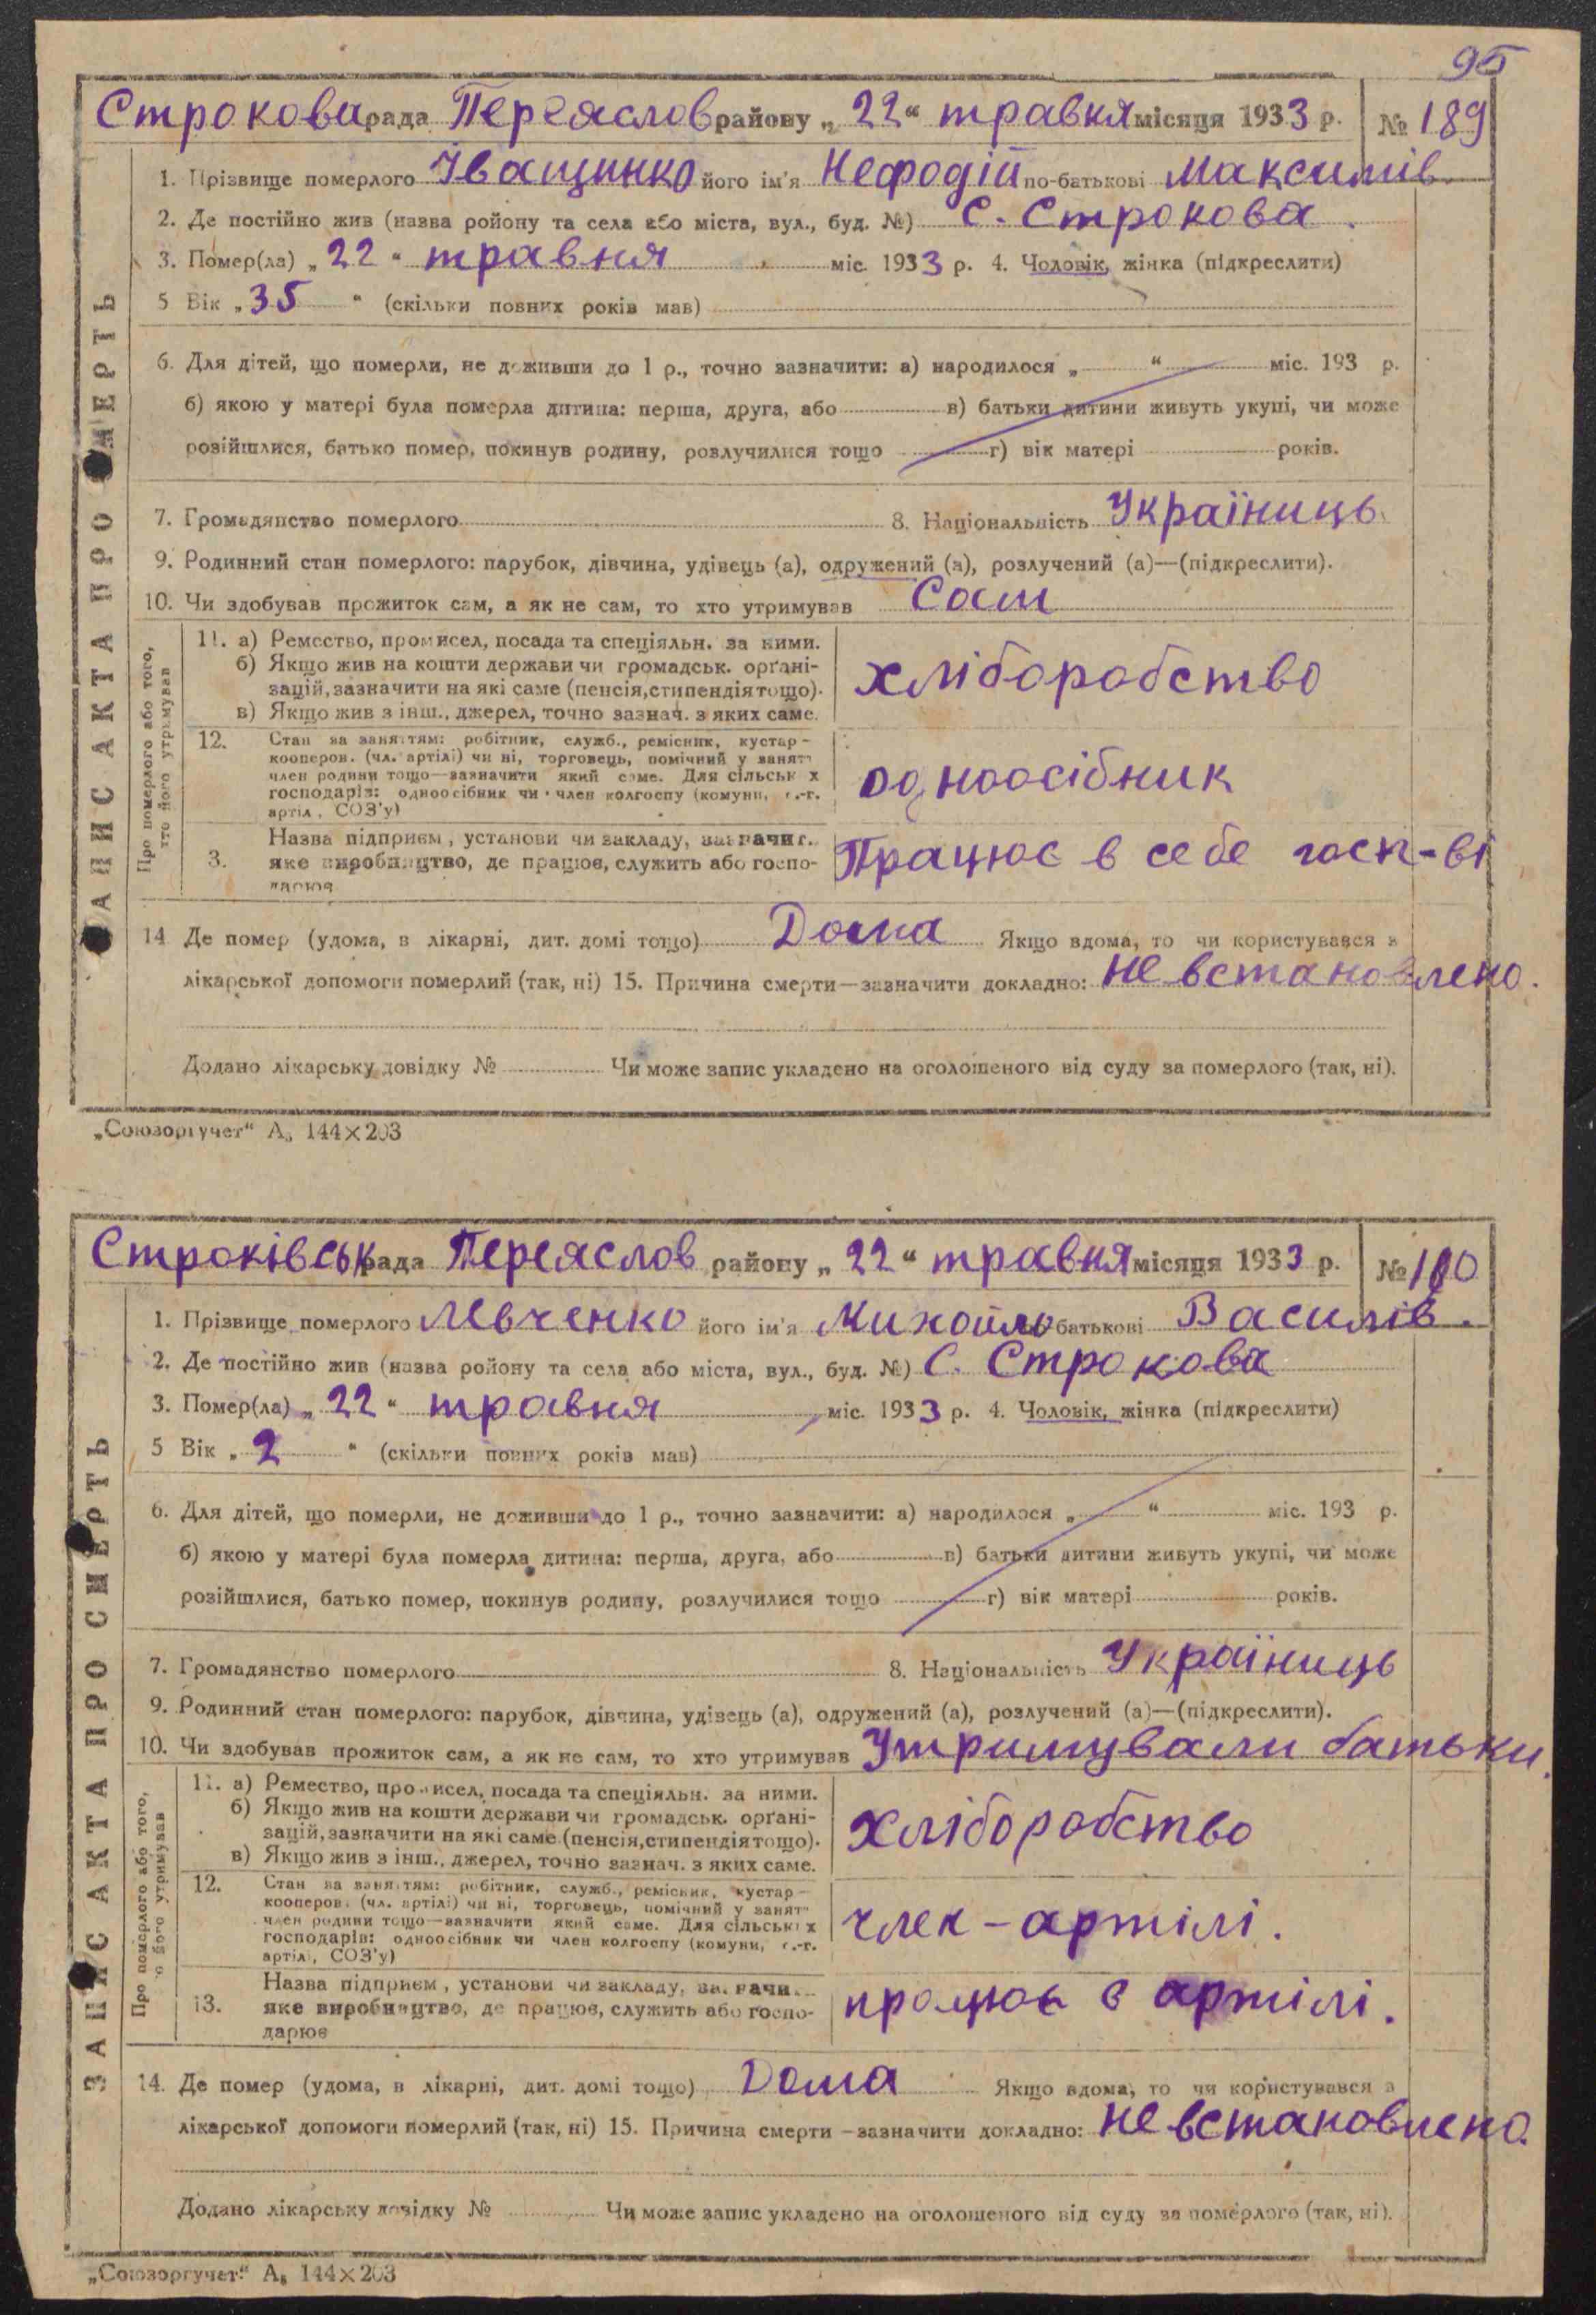 95
Строкова рада Переяслов району „ 22 “ травня місяця 1933 р. № 189
1. Прізвище померлого Іващинко його ім'я Нефодій по-батькові Максимів
2. Де постійно жив (назва ройону та села або міста, вул., буд. №) С. Строкова.
3. Помер(ла) „ 22 “ травня міс. 1933 р. 4. Чоловік, жінка (підкреслити)
5 Вік „ 35 “ (скільки повних років мав)
6. Для дітей, що померли, не доживши до 1 р., точно зазначити: а) народилося „ “ міс. 193 р.
б) якою у матері була померла дитина: перша, друга, або в) батьки дитини живуть укупі, чи може
розійшлися, батько помер, покинув родину, розлучилися тощо г) вік матері років.
7. Громадянство померлого 8. Національність Україниць
9. Родинний стан померлого: парубок, дівчина, удівець (а), одружений (а), розлучений (а)—(підкреслити).
10. Чи здобував прожиток сам, а як не сам, то хто утримував Сам
ЗАПИС АКТА ПРО СМЕРТЬ
Про померлого або того, хто його утримував
11. а) Ремество, промисел, посада та спеціяльн. за ними.
б) Якщо жив на кошти держави чи громадськ. орґані-
зацій, зазначити на які саме (пенсія, стипендія тощо).
в) Якщо жив з інш., джерел, точно зазнач. з яких саме.
хліборобство
12. Стан за заняттям: робітник, служб., ремісник, кустар-
кооперов. (чл. артілі) чи ні, торговець, помічний у занятт
член родини тощо—зазначити який саме. Для сільськ х
господарів: одноосібник чи член колгоспу (комуни, с.-г.
артіл, СОЗ'у)
одноосібник
3. Назва підприєм, установи чи закладу, зазначит.
яке виробництво, де працює, служить або госпо-
дарює
Працює в себе госп-ві
14 Де помер (удома, в лікарні, дит. домі тощо) Дома Якщо вдома, то чи користувався з
лікарської допомоги померлий (так, ні) 15. Причина смерти—зазначити докладно: не встановлено.
Додано лікарську довідку № Чи може запис укладено на оголошеного від суду за померлого (так, ні).
„Союзоргучет“ А₅ 144×203
Строківськ рада Переяслов району „ 22 “ травня місяця 1933 р. № 190
1. Прізвище померлого Левченко його ім'я Михайло по-батькові Василів.
2. Де постійно жив (назва ройону та села або міста, вул., буд. №) С. Строкова
3. Помер(ла) „ 22 “ травня міс. 1933 р. 4. Чоловік, жінка (підкреслити)
5 Вік „ 2 “ (скільки повних років мав)
6. Для дітей, що померли, не доживши до 1 р., точно зазначити: а) народилося „ “ міс. 193 р.
б) якою у матері була померла дитина: перша, друга, або в) батьки дитини живуть укупі, чи може
розійшлися, батько помер, покинув родину, розлучилися тощо г) вік матері років.
7. Громадянство померлого 8. Національність Україниць
9. Родинний стан померлого: парубок, дівчина, удівець (а), одружений (а), розлучений (а)—(підкреслити).
10. Чи здобував прожиток сам, а як не сам, то хто утримував Утримували батьки.
ЗАПИС АКТА ПРО СМЕРТЬ
Про померлого або того, хто його утримував
11. а) Ремество, промисел, посада та спеціяльн. за ними.
б) Якщо жив на кошти держави чи громадськ. орґані-
зацій, зазначити на які саме (пенсія, стипендія тощо).
в) Якщо жив з інш., джерел, точно зазнач. з яких саме.
хліборобство
12. Стан за заняттям: робітник, служб., ремісник, кустар-
кооперов. (чл. артілі) чи ні, торговець, помічний у занятт
член родини тощо—зазначити який саме. Для сільськ х
господарів: одноосібник чи член колгоспу (комуни, с.-г.
артіл, СОЗ'у)
член-артілі.
13. Назва підприєм, установи чи закладу, зазначи
яке виробництво, де працює, служить або госпо-
дарює
працює в артілі.
14. Де помер (удома, в лікарні, дит. домі тощо) Дома Якщо вдома, то чи користувався з
лікарської допомоги померлий (так, ні) 15. Причина смерти—зазначити докладно: не встановлено.
Додано лікарську довідку № Чи може запис укладено на оголошеного від суду за померлого (так, ні).
„Союзоргучет“ А₅ 144×203